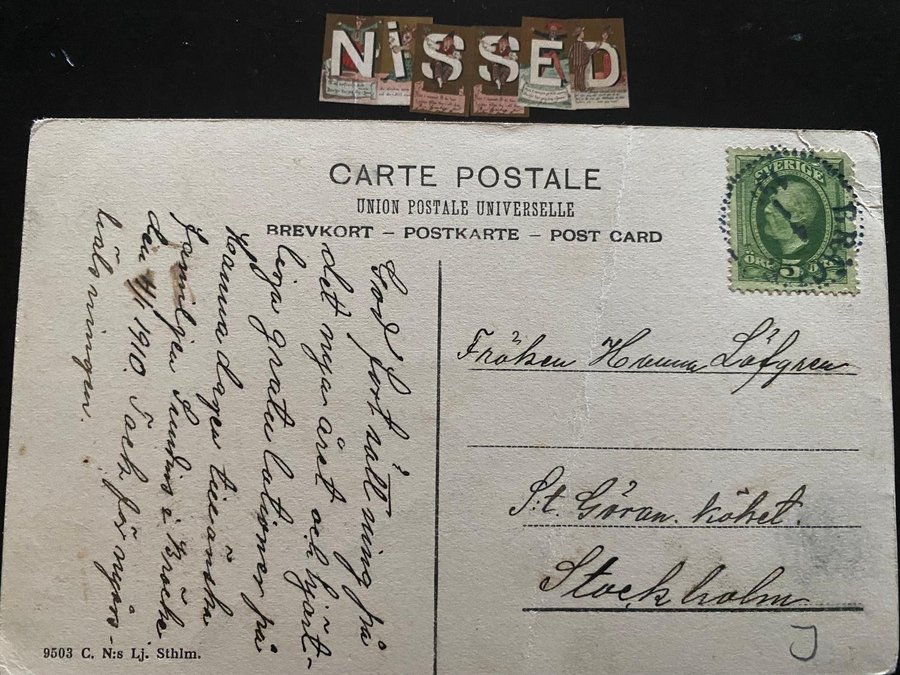 NiSSED
CARTE POSTALE
UNION POSTALE UNIVERSELLE
BREVKORT – POSTKARTE – POST CARD
SVERIGE
5
ÖRE
God fortsättning på
det nya året och hjärt-
liga gratulationer på
Hanna dagen tillönska
familjen i Bräcke
den 4/1 1910. Tack för nyårs-
hälsningen.
Fröken Hanna Löfgren
S:t Göran. köket.
Stockholm
9503 C. N:s Lj. Sthlm.